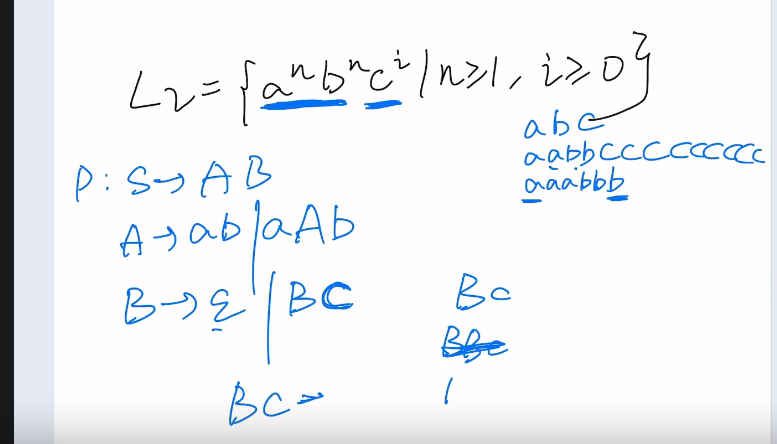 L₂ = {aⁿbⁿcⁱ | n≥1, i≥0}
abc
aabbccccccccc
aaabbb
P: S→AB
A→ab|aAb
B→ε|Bc
Bc
BBc
Bc→